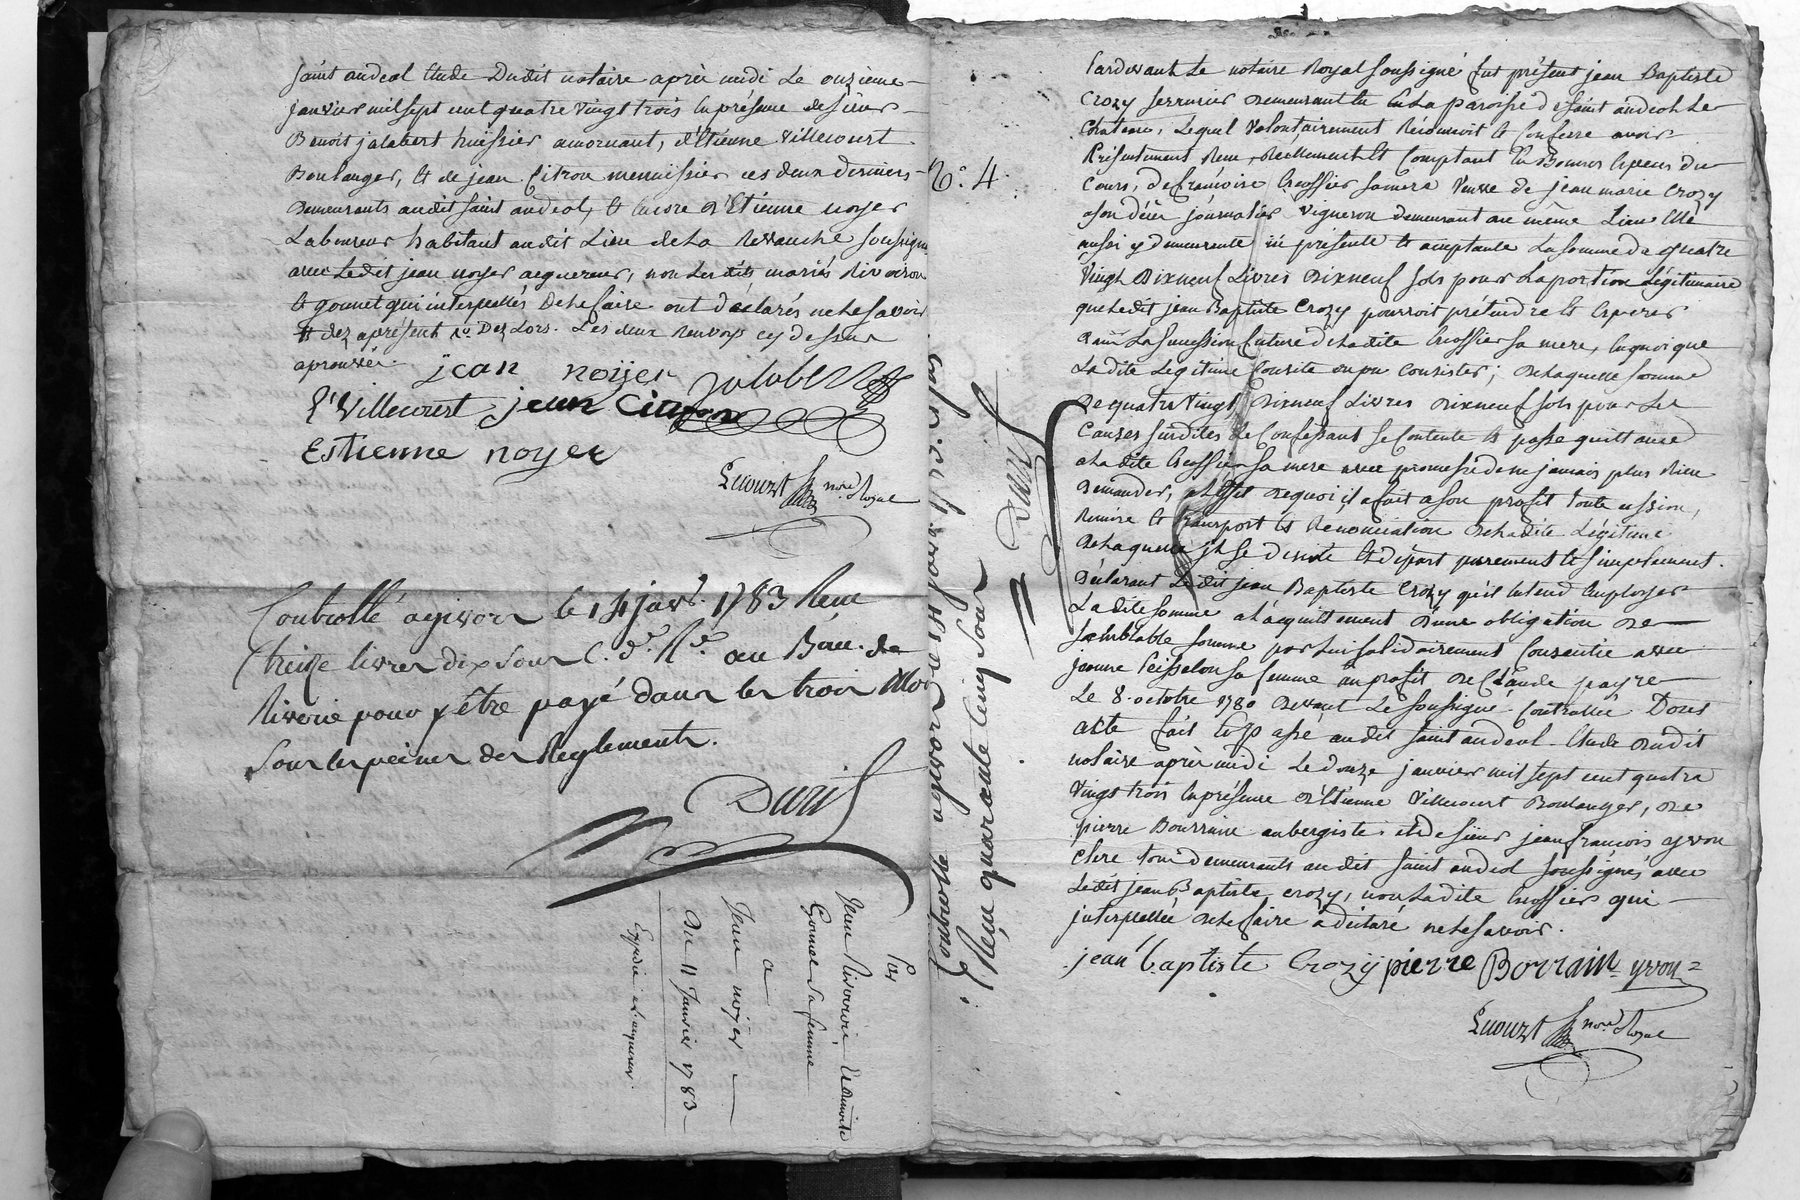 saint andeol Etude Dudit notaire après midi le onzieme
janvier mil sept cent quatre vingt trois en présence de sieur
Benoit jalabert huissier a mornant, d'Etienne villecourt
Boulanger, et de jean Citron menuissier ces deux derniers
Demeurants audit saint andeol, et encore d'Etienne noyer
Laboureur habitant audit Lieu de la soussignés
avec Ledit jean noyer acquereur, non Lesdits mariés Rivoiron
et gounet qui interpellés de ce faire ont déclarés ne le savoir
et dez aprésent Dez Lors. Les deux renvoys cy dessus
aprouvés
jean noyer jalabert
E Villecourt jean Citron
Estienne noyer
Lecourt not.re Royal
Controllé a givors le 14 janv.r 1783 Recu
treize livres dix sous C. d.e R.e au Bau. de
Riverie pour y être payé dans les trois Mois
Sous les peines des Reglements.
Duril
Par
Jean Rivoiron Et Benoite
Gounet sa femme
a
Jean noyer
Du 11 Janvier 1783
Expédié a L'acquereur
N.o 4
Controllé a givors le 14 janv.r 1783.
Recu quarante cinq sous
Duril
Pardevant Le notaire Royal soussigné fut présent jean Baptiste
Crozy serrurier demeurant en La paroisse de saint andeol Le
Chateau, Lequel volontairement Reconnoit et Confesse avoir
Présentement Recu, Reellement et Comptant En Bonnes Especes du
Cours, de francoise Creossier sa mere Veuve de jean marie Crozy
a son décès journalier vigneron demeurant au même Lieu Elle
aussi y demeurante ici présente et acceptante La somme de quatre
vingt Dixneuf Livres Dixneuf sols pour La portion Légitimaire
que Ledit jean Baptiste Crozy pourroit prétendre et Esperer
dans La succession future de Ladite Creossier sa mere, En quoi que
La dite Légitime Consiste ou pu Consister; de Laquelle somme
de quatre vingt dixneuf Livres dixneuf sols pour Les
Causes susdites Le Confessant se Contente et passe quittance
a La dite Creossier sa mere avec promesse de ne jamais plus Rien
Demander, a L'effet de quoi il a fait a son profit toute cession,
Remise et transport et Renonciation de La dite Légitime
de Laquelle il se devet et départ purement et simplement.
Déclarant Ledit jean Baptiste Crozy qu'il entend Employer
La dite somme a L'acquittement d'une obligation de
semblable somme par Lui solidairement Consentie avec
jeanne Peisselon sa femme au profit de Claude payre
Le 8. octobre 1780 devant Le soussigné Controllée. Dont
acte fait et passé audit saint andeol Etude dudit
notaire après midi Le douze janvier mil sept cent quatre
vingt trois En présence d'Etienne Villecourt Boulanger, de
pierre Bourrain aubergiste et de sieur jean francois yvon
clerc tous demeurants audit saint andeol soussignés avec
Ledit jean Baptiste Crozy, non Ladite Creossier qui
interpellée de ce faire a déclaré ne le savoir.
jean baptiste Crozy pierre Borrain yvon
Lecourt not.re Royal